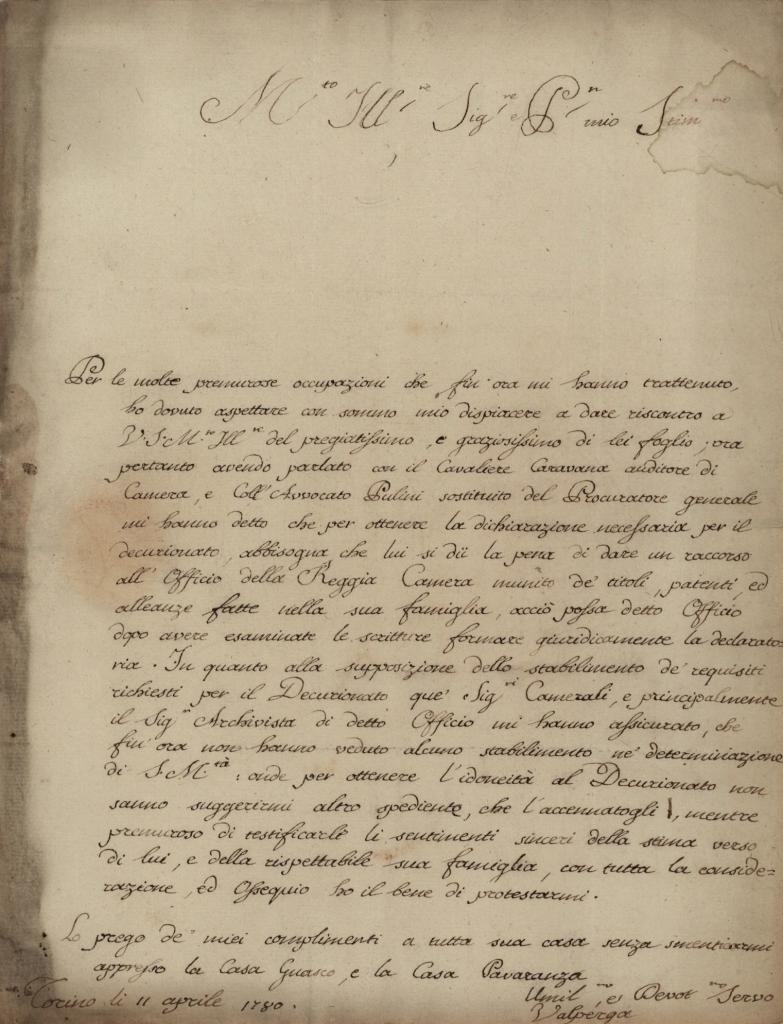 M.to Ill.re Sig.re e P.n mio Stim.mo
Per le molte premurose occupazioni che fin' ora mi hanno trattenuto,
ho dovuto aspettare con sommo mio dispiacere a dare riscontro a
V.S.M.to Ill.re del pregiatissimo, e graziosissimo di lei foglio; ora
pertanto avendo parlato con il Cavaliere Caravana auditore di
Camera, e Coll'Avvocato Pulini sostituito del Procuratore generale
mi hanno detto che per ottenere la dichiarazione necessaria per il
decurionato, abbisogna che lui si dii la pena di dare un raccorso
all' Officio della Reggia Camera munito de' titoli, patenti, ed
alleanze fatte nella sua famiglia, acciò possa detto Officio
dopo avere esaminate le scritture formare giuridicamente la declarato=
ria. In quanto alla supposizione dello stabilimento de' requisiti
richiesti per il Decurionato que' Sig.ri Camerali, e principalmente
il Sig.r Archivista di detto Officio mi hanno assicurato, che
fin' ora non hanno veduto alcuno stabilimento ne' determinazione
di S.M.tà: onde per ottenere l'idoneità al Decurionato non
sanno suggerirmi altro spediente, che l'accennatogli, mentre
premuroso di testificarle li sentimenti sinceri della stima verso
di lui, e della rispettabile sua famiglia, con tutta la conside=
razione, ed Ossequio ho il bene di protestarmi.
Lo prego de' miei complimenti a tutta sua casa senza smenticarmi
appresso la Casa Guasco, e la Casa Pavaranza
Torino li 11 aprile 1780.
Umil.mo, e Devot.mo Servo
Valperga